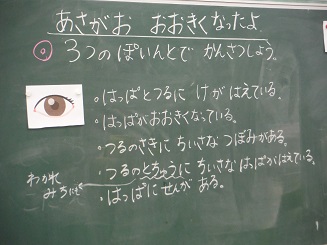 あさがお おおきくなったよ
◎ 3つの ぽいんとで かんさつしよう。
・はっぱとつるに けが はえている。
・はっぱがおおきくなっている。
・つるのさきに ちいさな つぼみがある。
・つるのとちゅうに ちいさな はっぱがはえている。
わかれ
みちに
・はっぱに せんが ある。